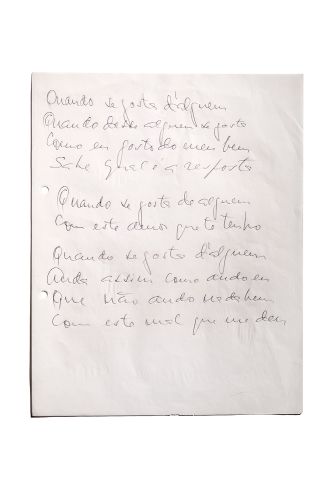 Quando se gosta d'alguem
Quando desse alguem se gosta
Como eu gosto do meu bem
Sabe qual é a resposta
Quando se gosta de alguem
Com este amor que te tenho
Quando se gosta d'alguem
Anda assim como ando eu
Que não ando nada bem
Com este mal que me deu